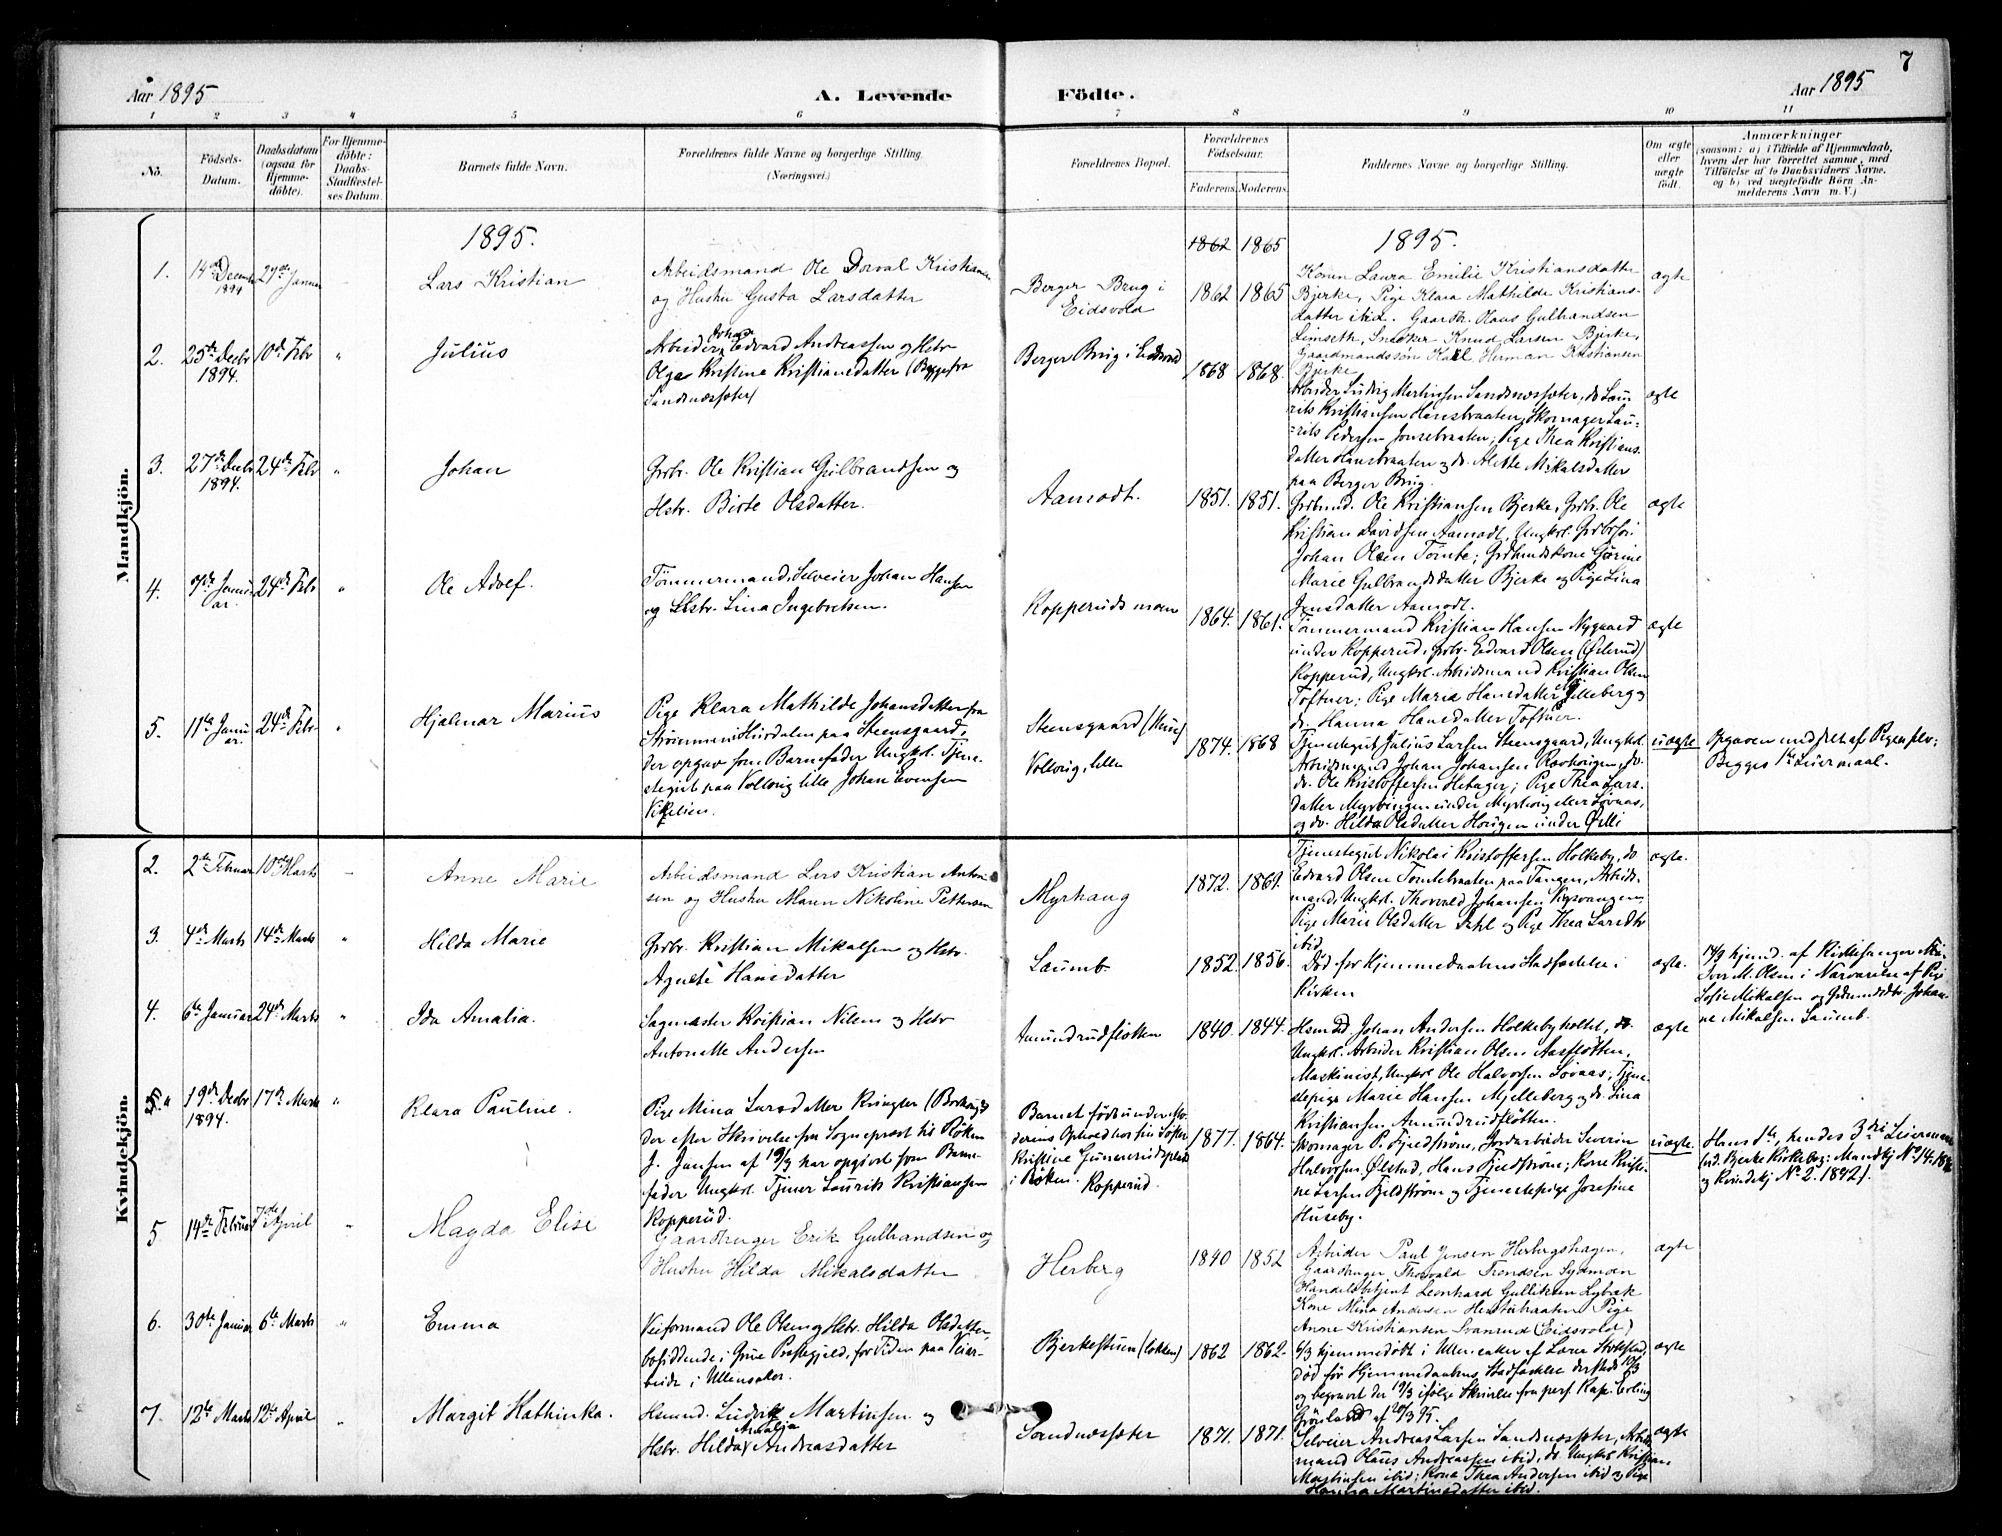 7
Aar 1895
A. Levende
Födte.
Aar 1895
1 2 3 4 5 6 7 8 9 10 11
No.
Födsels-
Datum.
Daabsdatum
(ogsaa for
Hjemme-
döbte).
For Hjemme-
döbte:
Daabs-
Stadfæstel-
ses Datum.
Barnets fulde Navn.
Forældrenes fulde Navne og borgerlige Stilling.
(Næringsvei.)
Forældrenes Bopæl.
Forældrenes
Födselsaar.
Faderens. Moderens.
Faddernes Navne og borgerlige Stilling.
Om ægte
eller
uægte
födt.
Anmærkninger
(saasom: a) i Tilfælde af Hjemmedaab,
hvem der har forrettet samme, med
Tilföielse af to Daabsvidners Navne,
og b) ved uægtefödte Börn An-
melderens Navn m. V.)
Mandkjön.
1895.
1862 1865
1895.
1.
14de December
1894
27de Januar
Lars Kristian
Arbeidsmand Ole Dorval Kristiansen
og Hustru Gusta Larsdatter
Berger Brug i
Eidsvold
1862 1865
Konen Laura Emilie Kristiansdatter
Bjerke, Pige Klara Mathilde Kristians-
datter ibid. Gaardbr. Hans Gulbrandsen
Limseth, Snedker Knud Larsen Bjerke,
Gaardmandssøn Karl Herman Kristiansen
Bjerke
ægte
2.
25de Decbr
1894.
10de Febr
"
Julius
Arbeider Johan Edvard Andreassen og Hstr
Olga Kristine Kristiansdatter (Begge fra
Sandnessæter)
Berger Brug i Eidsvold
1868 1868.
Arbeider Ludvig Martinsen Sandnessæter, do Lau-
rits Kristiansen Hansbraaten, Skomager Lau-
rits Pedersen Jonsebraaten; Pige Thea Kristians-
datter Hansbraaten og do. Alette Mikalsdatter
paa Berger Brug.
ægte
3.
27de Decbr
1894.
24de Febr
"
Johan
Grdbr. Ole Kristian Gulbrandsen og
Hstr. Birte Olsdatter.
Aamodt.
1851. 1851.
Grdmd. Ole Kristiansen Bjerke, Grdbr. Ole
Kristian Davidsen Aamodt, Ungkrl. Grdbrsøn
Johan Olsen Tømte; Grdmdskone Gørine
Marie Gulbrandsdatter Bjerke og Pige Lina
Jensdatter Aamodt.
ægte
4.
7de Janu-
ar.
24de Febr
"
Ole Adolf.
Tømmermand, Selveier Johan Hansen
og Hstr. Lina Ingebretsen.
Kopperudsmoen
1864. 1861.
Tømmermand Kristian Hansen Nygaard
under Kopperud, Grdbr. Edvard Olsen (Østerud)
Kopperud, Ungkrl. Arbeidsmand Kristian Olsen
Toftner; Pige Maria Hansdatter Mjelleberg og
do. Hanna Hansdatter Toftner.
ægte
5.
11te Janu-
ar.
24de Febr
"
Hjalmar Marius
Pige Klara Mathilde Johansdatter fra
Strømmen i Hurdalen paa Steensgaard,
der opgav som Barnefader Ungkrl. Tjene-
stegut paa Vollaug lille Johan Evensen
Steensgaard
1874. 1868
Tjenestegut Julius Larsen Steensgaard, Ungkrl.
Arbeidsmand Johan Johansen
do. Ole Kristoffersen Hetager; Pige Thea Lars-
datter
og do. Hilda Olsdatter Horigen under
uægte
Opgaven undskr. af Pigen selv;
Begges 1ste Leiermaal.
Kvindekjön.
2.
2de Februar
10de Marts
Anne Marie
Arbeidsmand Lars Kristian Anton-
sen og Hustru Maren Nikoline Pettersen
Myrhaug
1872. 1869.
Tjenestegut Nikolai Kristoffersen Holkeby, do
Edvard Olsen Tømtebraaten paa Tangen, Arbeids-
mand, Ungkrl. Thorvald Johansen
Pige Marie Olsdatter Dahl og Pige Thea Larsdtr
ibid
ægte.
3.
4de Marts
14de Marts
"
Hilda Marie
Grdbr. Kristian Mikalsen og Hstr.
Agnete Hansdatter
Laumb
1852. 1856.
Død før Hjemmedaabens Stadfæstelse i
Kirken
ægte.
14/3 hjemd. af Kirkesanger
M. Olsen i Nærværelse af Pige
Sofie Mikalsen og Grdmdsdtr. Johan-
ne Mikalsen Laumb.
4.
6te Januar
24de Marts
"
Ida Amalia.
Sagmester Kristian Nilsen og Hstr
Antonette Andersen
Amundrudfløtten
1840. 1844.
Hsmd. Johan Andersen Holkebyholtet, do.
Ungkrl. Arbeider Kristian Olsen Aasfløtten,
Maskinist, Ungkrl. Ole Halvorsen Løvaas; Tjene-
stepige Marie Hansen Mjelleberg og do. Lina
Kristiansen Amundrudfløtten.
ægte
5.
19de Decbr
1894.
17de Marts
"
Klara Pauline.
Pige Mina Larsdatter Kringler
der efter Skrivelse fra Sognepræst til Røken
J. Jansen af 19/3 har opgivet som Barne-
fader Ungkrl. Tjener Laurits Kristiansen
Kopperud.
Barnet født under Mo-
derens Ophold hos sin Søster
Kristine Gunnerudsplads
i Røken. Kopperud.
1877. 1864.
Skomager P. Fjeldstrøm, Jordarbeider Severin
Halvorsen Ølstad, Hans Fjeldstrøm; Kone Kristi-
ne Larsen Fjeldstrøm og Tjenestepige Josefine
Huseby.
uægte.
Hans 1ste, hendes 3die Leiermaal
(vd. Bjerke Kirkebog: Mandkj No. 14.
og Kvindekj No. 2. 1892).
5
14de Februar
7de April
"
Magda Elise
Gaardbruger Erik Gulbrandsen og
Hustru Hilda Mikalsdatter
Herberg
1840 1852
Arbeider Paul Jensen Herbergshagen,
Gaardbruger Thorvald Trondsen Sydmoen
Handelsbetjent Leonhard Gulliksen Lybæk
Kone Mina Andersen Pige
Anne Kristiansen Svanrud (Eidsvold)
ægte
6.
30te Januar
6te Marts
"
Emma
Veiformand Ole Olsen og Hstr. Hilda Olsdatter,
bosiddende i Grue Præstegjeld, for Tiden paa Veiar-
beide i Ullensaker.
Bjerkestuen
1862 1862.
6/3 hjemmedøbt i Ullensaker af
død før Hjemmedaabens Stadfæstelse
og begravet den 19/3 ifølge Skrivelse fra pers. Kap. Erling
Grønland af 20/3 95.
ægte
7.
12te Marts
12te April
"
Margit Kathinka.
Hsmd. Ludvig Martinsen og
Hstr. Hilda Amalja Andreasdatter
Sandnessæter
1871. 1871.
Selveier Andreas Larsen Sandnessæter, Arbeids-
mand Olaus Andreassen ibid, do Ungkrl. Kristian
Martinsen ibid; Kona Thea Andersen ibid og Pige
Hanna Martinsdatter ibid.
ægte